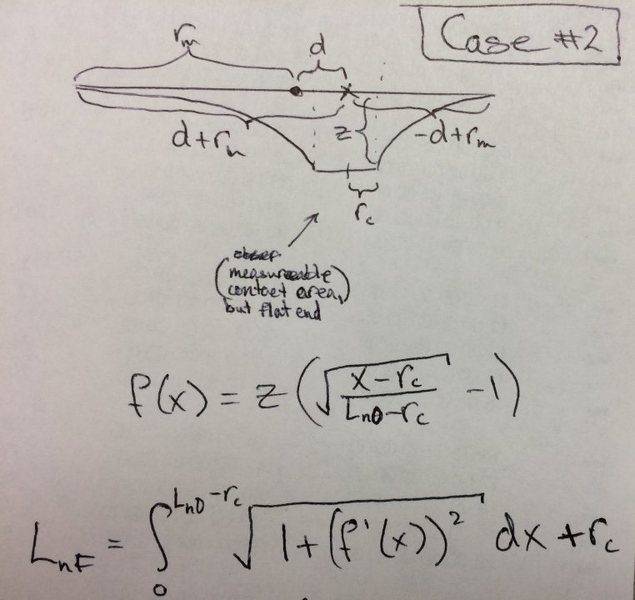 Case #2
rₘ d
d+rₙ z -d+rₘ
r_c
(measureable
contact area,
but flat end)
f(x) = z (√((x-r_c)/(Lₙ₀-r_c)) -1)
L_nF = ∫₀^(Lₙ₀-r_c) √(1+(f'(x))²) dx + r_c